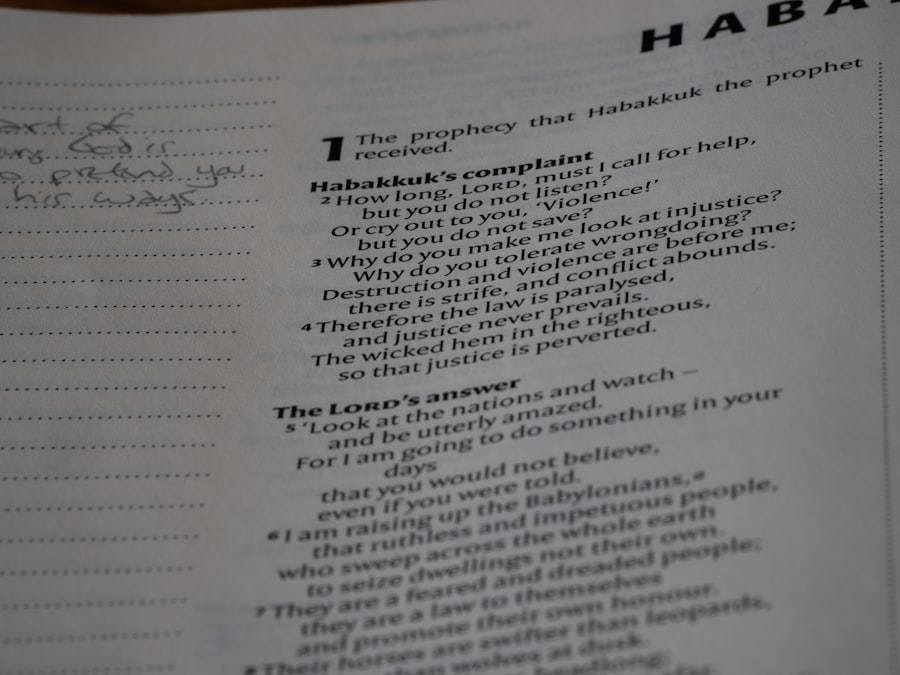 HABA
art of
God is
pretend you
his ways.
1 The prophecy that Habakkuk the prophet
received.
Habakkuk's complaint
2 How long, LORD, must I call for help,
but you do not listen?
Or cry out to you, 'Violence!'
but you do not save?
3 Why do you make me look at injustice?
Why do you tolerate wrongdoing?
Destruction and violence are before me;
there is strife, and conflict abounds.
4 Therefore the law is paralysed,
and justice never prevails.
The wicked hem in the righteous,
so that justice is perverted.
The LORD's answer
5 'Look at the nations and watch –
and be utterly amazed.
For I am going to do something in your
days
that you would not believe,
even if you were told.
6 I am raising up the Babylonians,a
that ruthless and impetuous people,
who sweep across the whole earth
to seize dwellings not their own.
7 They are a feared and dreaded people;
they are a law to themselves
and promote their own honour.
8 Their horses are swifter than leopards,
than wolves at dusk.
headlong;